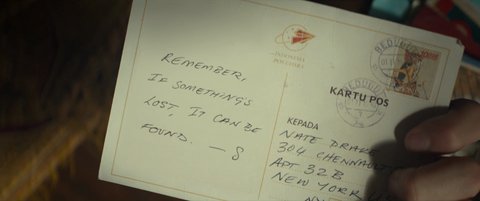 REMEMBER,
IF SOMETHING'S
LOST, IT CAN BE
FOUND. — S
INDONESIA
KARTU POS
KEPADA
NATE DRAKE
304 CHENNAULT
APT 32B
NEW YORK